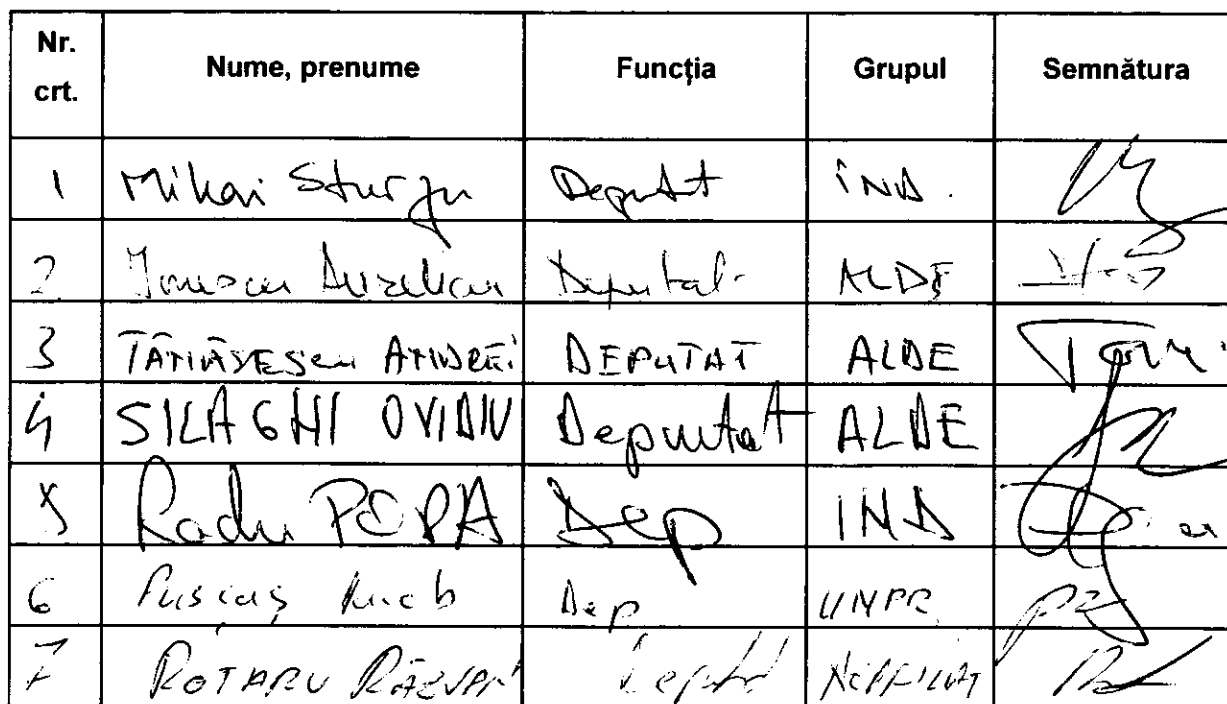 Nr. crt. Nume, prenume Funcția Grupul Semnătura
1 Mihai Sturzu Deputat IND.
2 Ionescu Aurelian Deputat ALDE
3 TĂNĂSESCU ANDREI DEPUTAT ALDE
4 SILAGHI OVIDIU Deputat ALDE
5 Radu POPA Dep IND
6 Pușcaș Dep UNPR
7 ROTARU RĂZVAN Deputat NEAFILIAT